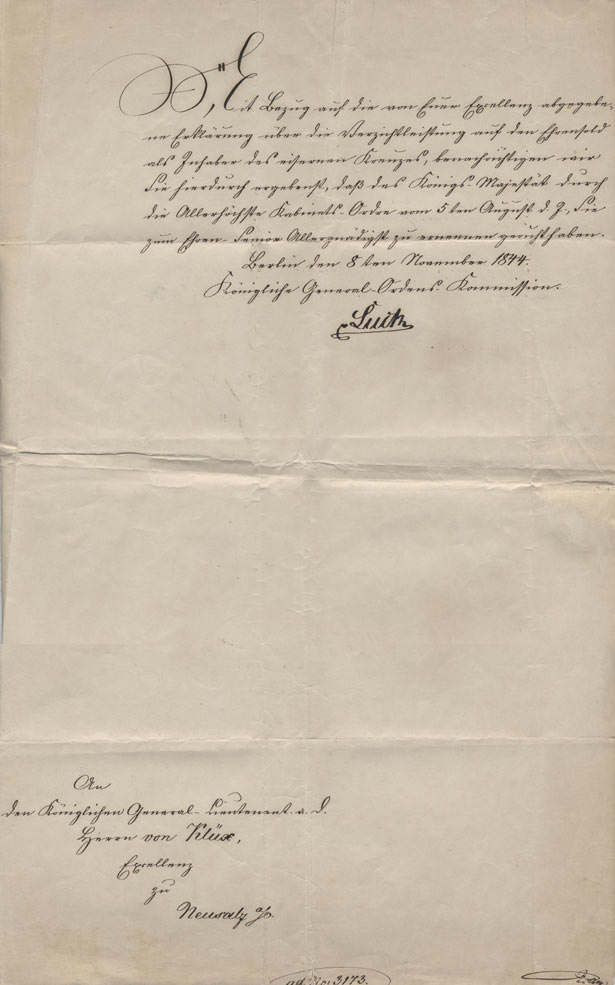 Mit Bezug auf die von Euer Excellenz abgegebe-
ne Erklärung über die Verzichtleistung auf den Ehrensold
als Inhaber des eisernen Kreuzes, benachrichtigen wir
Sie hierdurch ergebenst, daß des Königs Majestät durch
die Allerhöchste Kabinets-Ordre vom 5ten August d. J., Sie
zum Ehren-Senior Allergnädigst zu ernennen geruht haben.
Berlin den 8ten November 1844.
Königliche General-Ordens-Kommission.
An
den Königlichen General-Lieutenant a. D.
Herrn von Klüx,
Excellenz
zu
Neusalz a/o.
ad No. 3173.